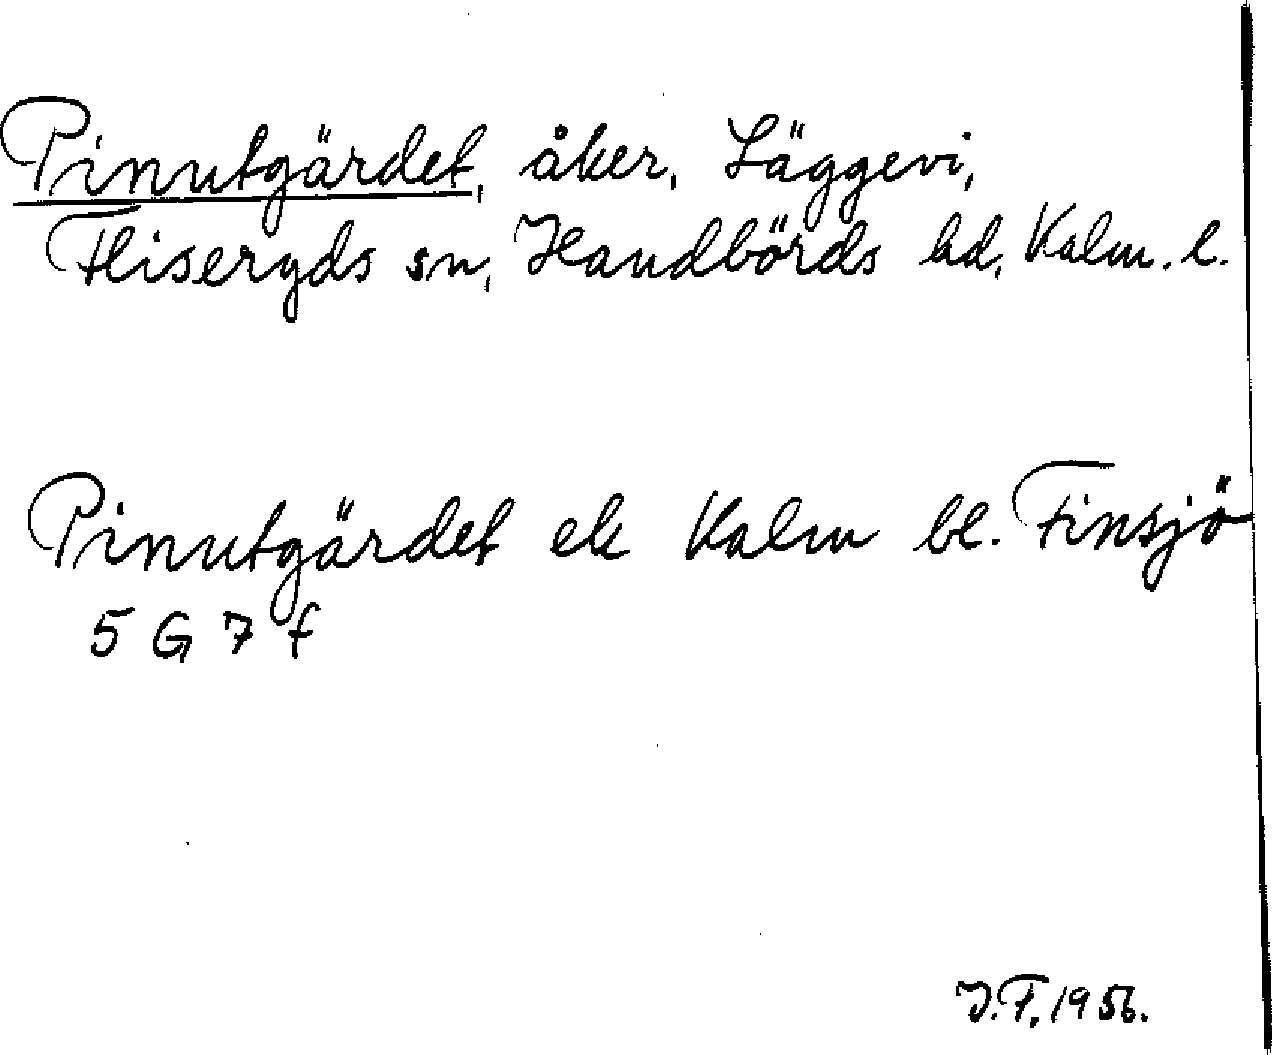 Pinutgärdet, åker, Läggevi,
Fliseryds sn, Handbörds hd, Kalm. l.
Pinutgärdet ek Kalm bl. Finsjö
5 G 7 f
J.F. 1956.